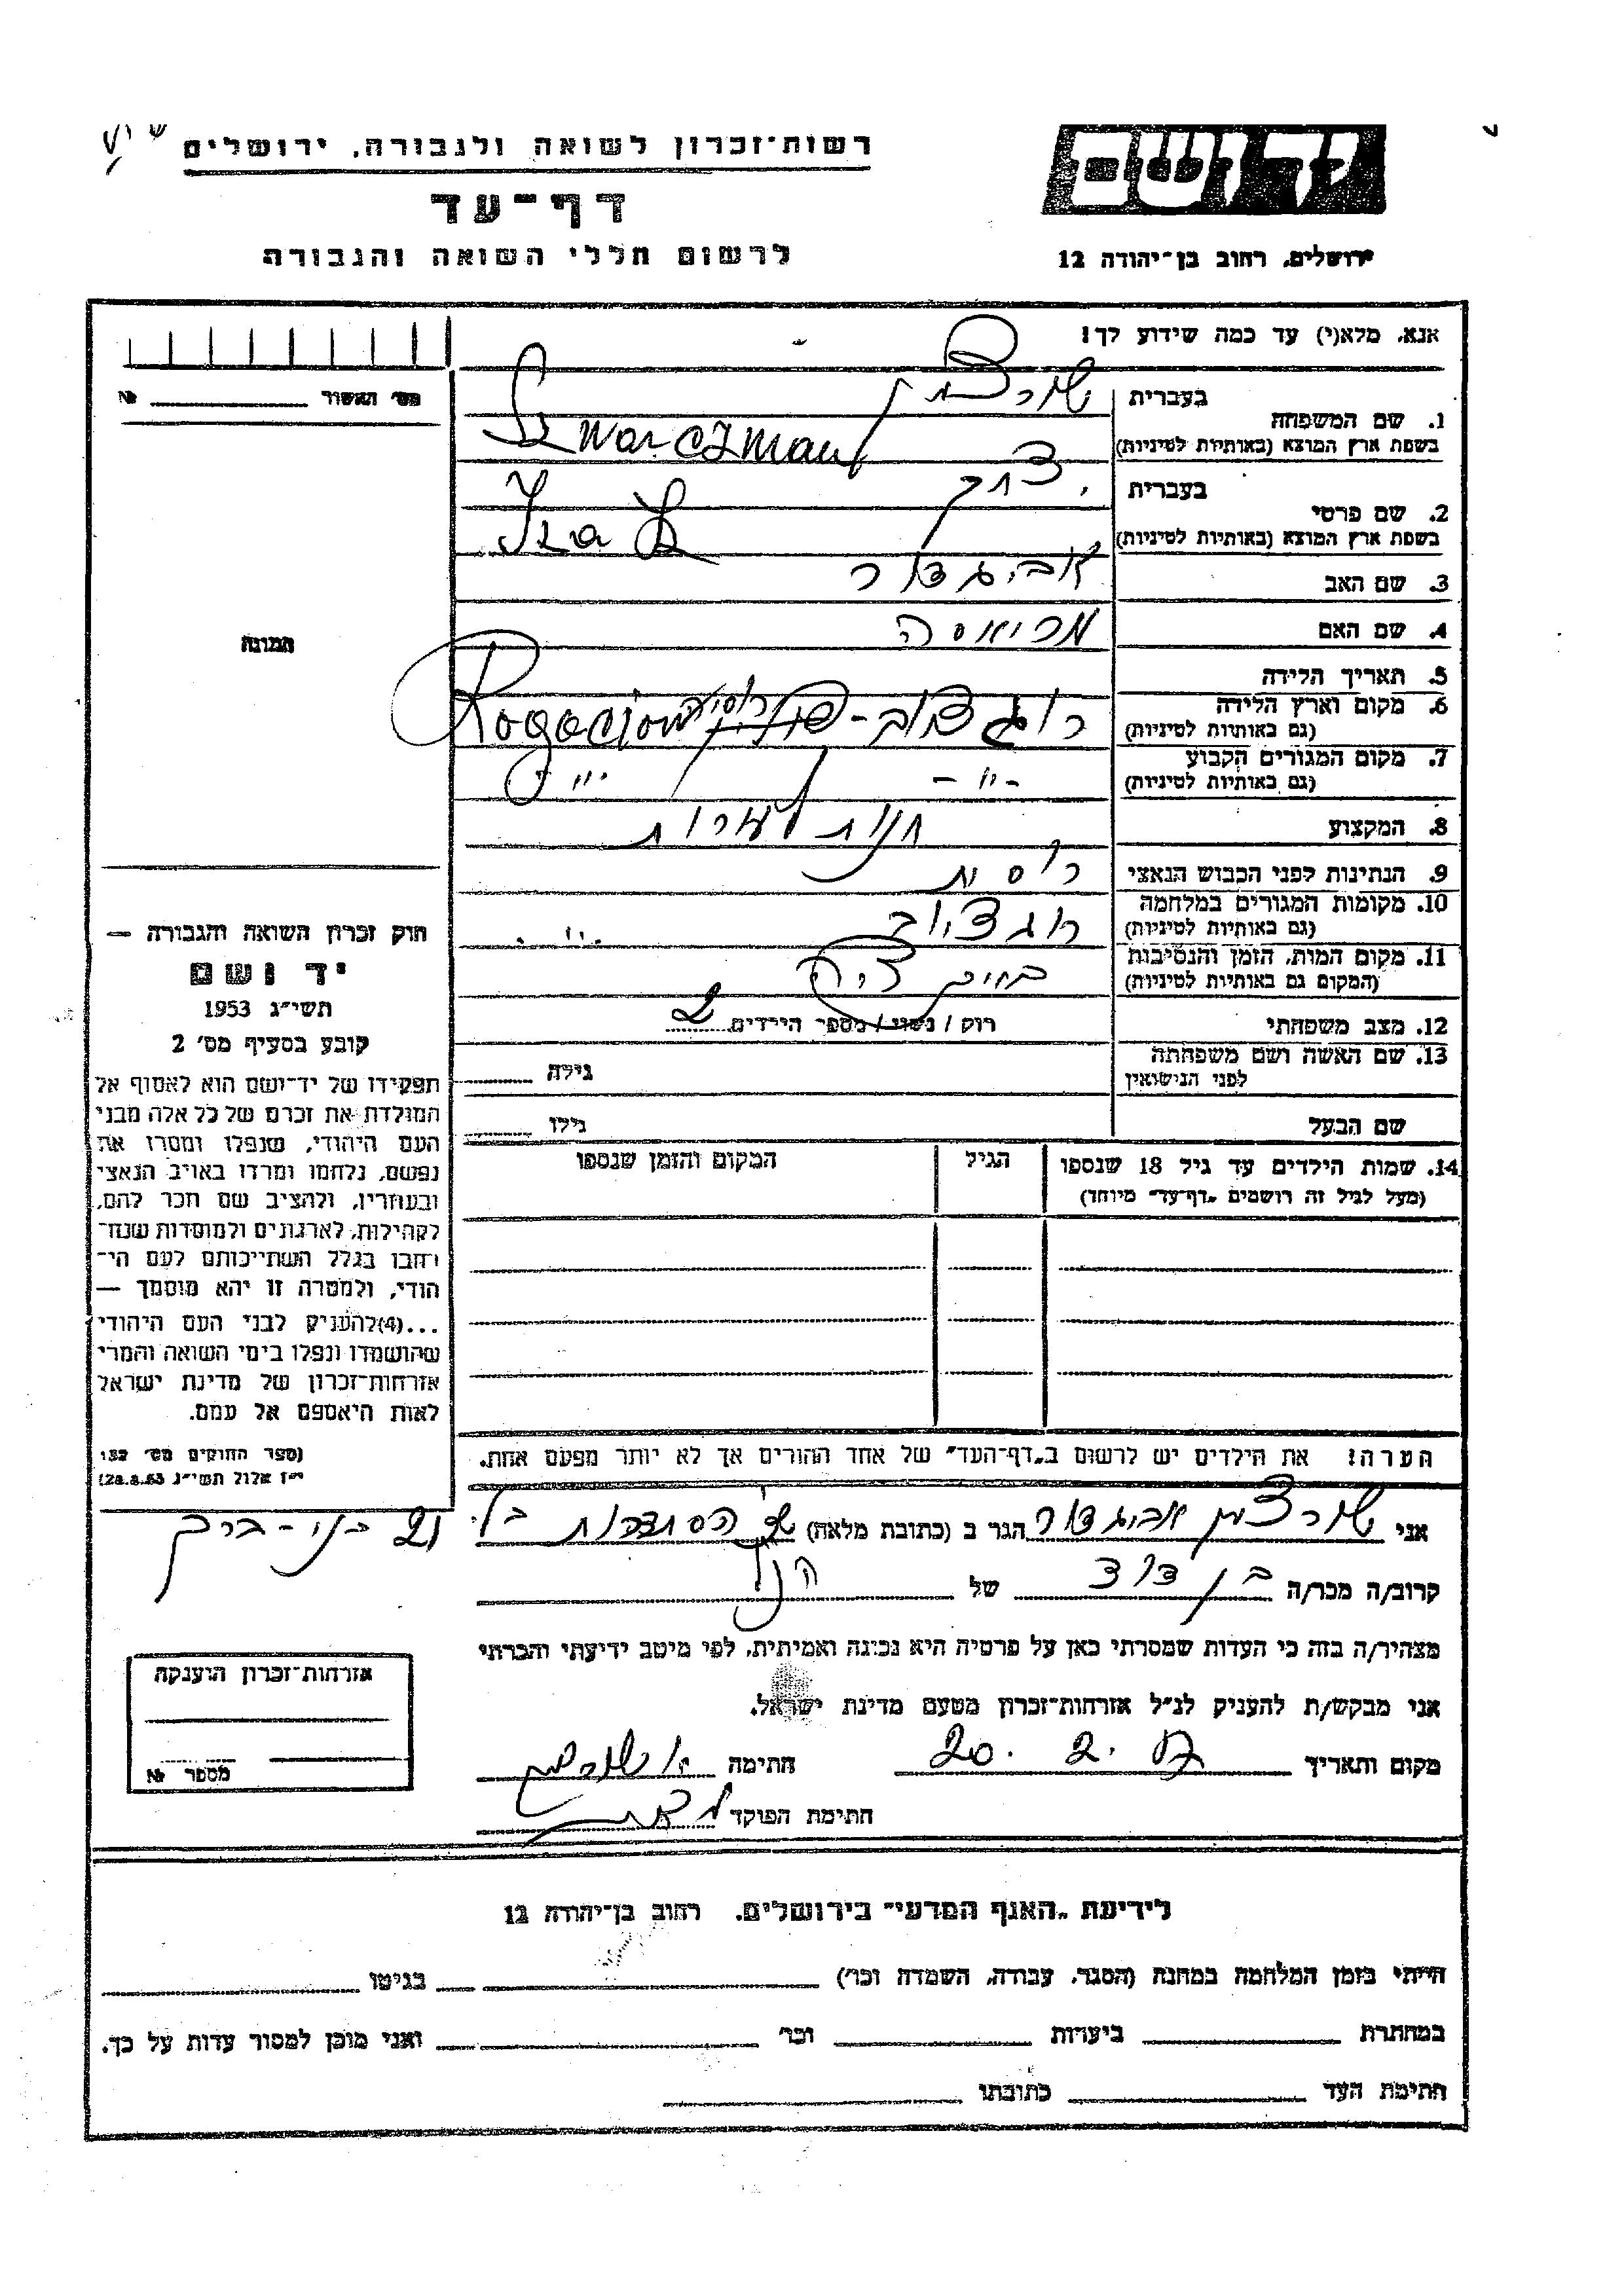 רשות־זכרון לשואה ולגבורה, ירושלים
דף־עד
לרשום חללי השואה והגבורה
יד ושם
ירושלים, רחוב בן־יהודה 12
אנא, מלא(י) עד כמה שידוע לך!
מס׳ האשור №
1. שם המשפחה
בעברית שורצמן
בשפת ארץ המוצא (באותיות לטיניות) Szwarczman
2. שם פרטי
בעברית יצחק
בשפת ארץ המוצא (באותיות לטיניות) Izak
3. שם האב אביגדור
4. שם האם
5. תאריך הלידה
6. מקום וארץ הלידה
(גם באותיות לטיניות)
7. מקום המגורים הקבוע
(גם באותיות לטיניות) -״- -״-
8. המקצוע חנות
9. הנתינות לפני הכבוש הנאצי רוסית
10. מקומות המגורים במלחמה
(גם באותיות לטיניות)
11. מקום המות, הזמן והנסיבות
(המקום גם באותיות לטיניות)
12. מצב משפחתי רוק / נשוי / מספר הילדים 2
13. שם האשה ושם משפחתה
לפני הנישואין גילה
שם הבעל גילו
14. שמות הילדים עד גיל 18 שנספו הגיל המקום והזמן שנספו
(מעל לגיל זה רושמים „דף־עד״ מיוחד)
הערה! את הילדים יש לרשום ב„דף־העד״ של אחד ההורים אך לא יותר מפעם אחת.
התמונה
חוק זכרון השואה והגבורה —
יד ושם
תשי״ג 1953
קובע בסעיף מס׳ 2
תפקידו של יד־ושם הוא לאסוף אל
המולדת את זכרם של כל אלה מבני
העם היהודי, שנפלו ומסרו את
נפשם, נלחמו ומרדו באויב הנאצי
ובעוזריו, ולהציב שם וזכר להם,
לקהילות, לארגונים ולמוסדות שנח־
רבו בגלל השתייכותם לעם הי־
הודי, ולמטרה זו יהא מוסמך —
...(4) להעניק לבני העם היהודי
שהושמדו ונפלו בימי השואה והמרי
אזרחות־זכרון של מדינת ישראל
לאות היאספם אל עמם.
(ספר החוקים מס׳ 132
י״ז אלול תשי״ג 28.8.53)
אני שורצמן אביגדור הגר ב (כתובת מלאה) ההסתדרות 21 בני-ברק
קרוב/ה מכר/ה בן דוד של הנ״ל
מצהיר/ה בזה כי העדות שמסרתי כאן על פרטיה היא נכונה ואמיתית, לפי מיטב ידיעתי והכרתי
אני מבקש/ת להעניק לנ״ל אזרחות־זכרון מטעם מדינת ישראל.
מקום ותאריך 20. 2. חתימה
חתימת הפוקד
אזרחות־זכרון הוענקה
מספר №
לידיעת „האגף המדעי״ בירושלים, רחוב בן־יהודה 12
הייתי בזמן המלחמה במחנה (הסגר, עבודה, השמדה וכו׳) בגיטו
במחתרת ביערות וכו׳ ואני מוכן למסור עדות על כך.
חתימת העד כתובתו